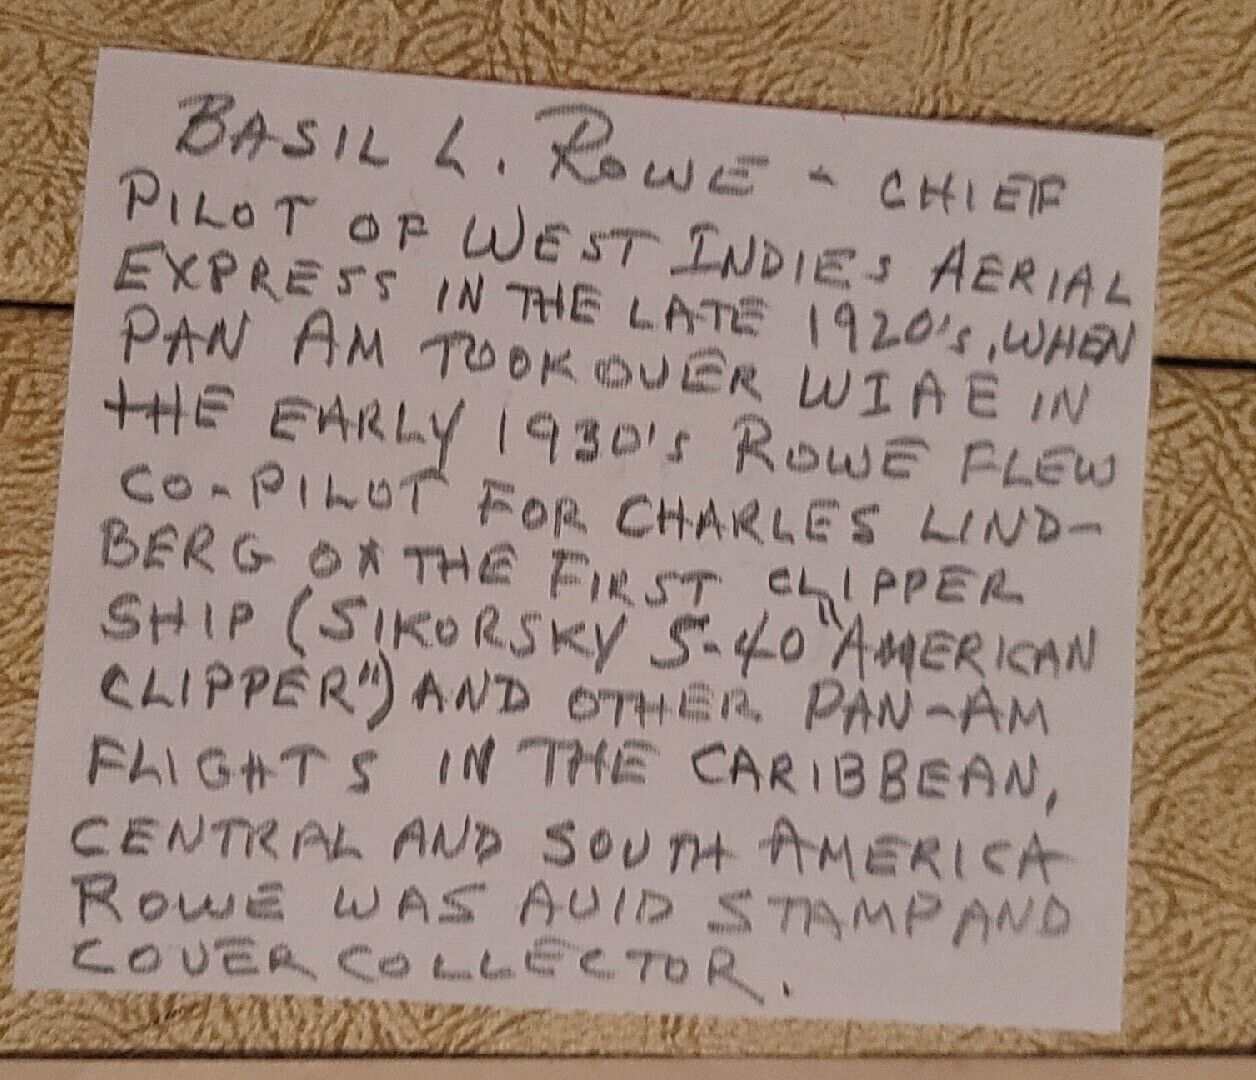 BASIL L. ROWE - CHIEF
PILOT OF WEST INDIES AERIAL
EXPRESS IN THE LATE 1920's, WHEN
PAN AM TOOK OVER WIAE IN
THE EARLY 1930's ROWE FLEW
CO-PILOT FOR CHARLES LIND-
BERG ON THE FIRST CLIPPER
SHIP (SIKORSKY S-40 "AMERICAN
CLIPPER") AND OTHER PAN-AM
FLIGHTS IN THE CARIBBEAN,
CENTRAL AND SOUTH AMERICA
ROWE WAS AVID STAMP AND
COVER COLLECTOR.